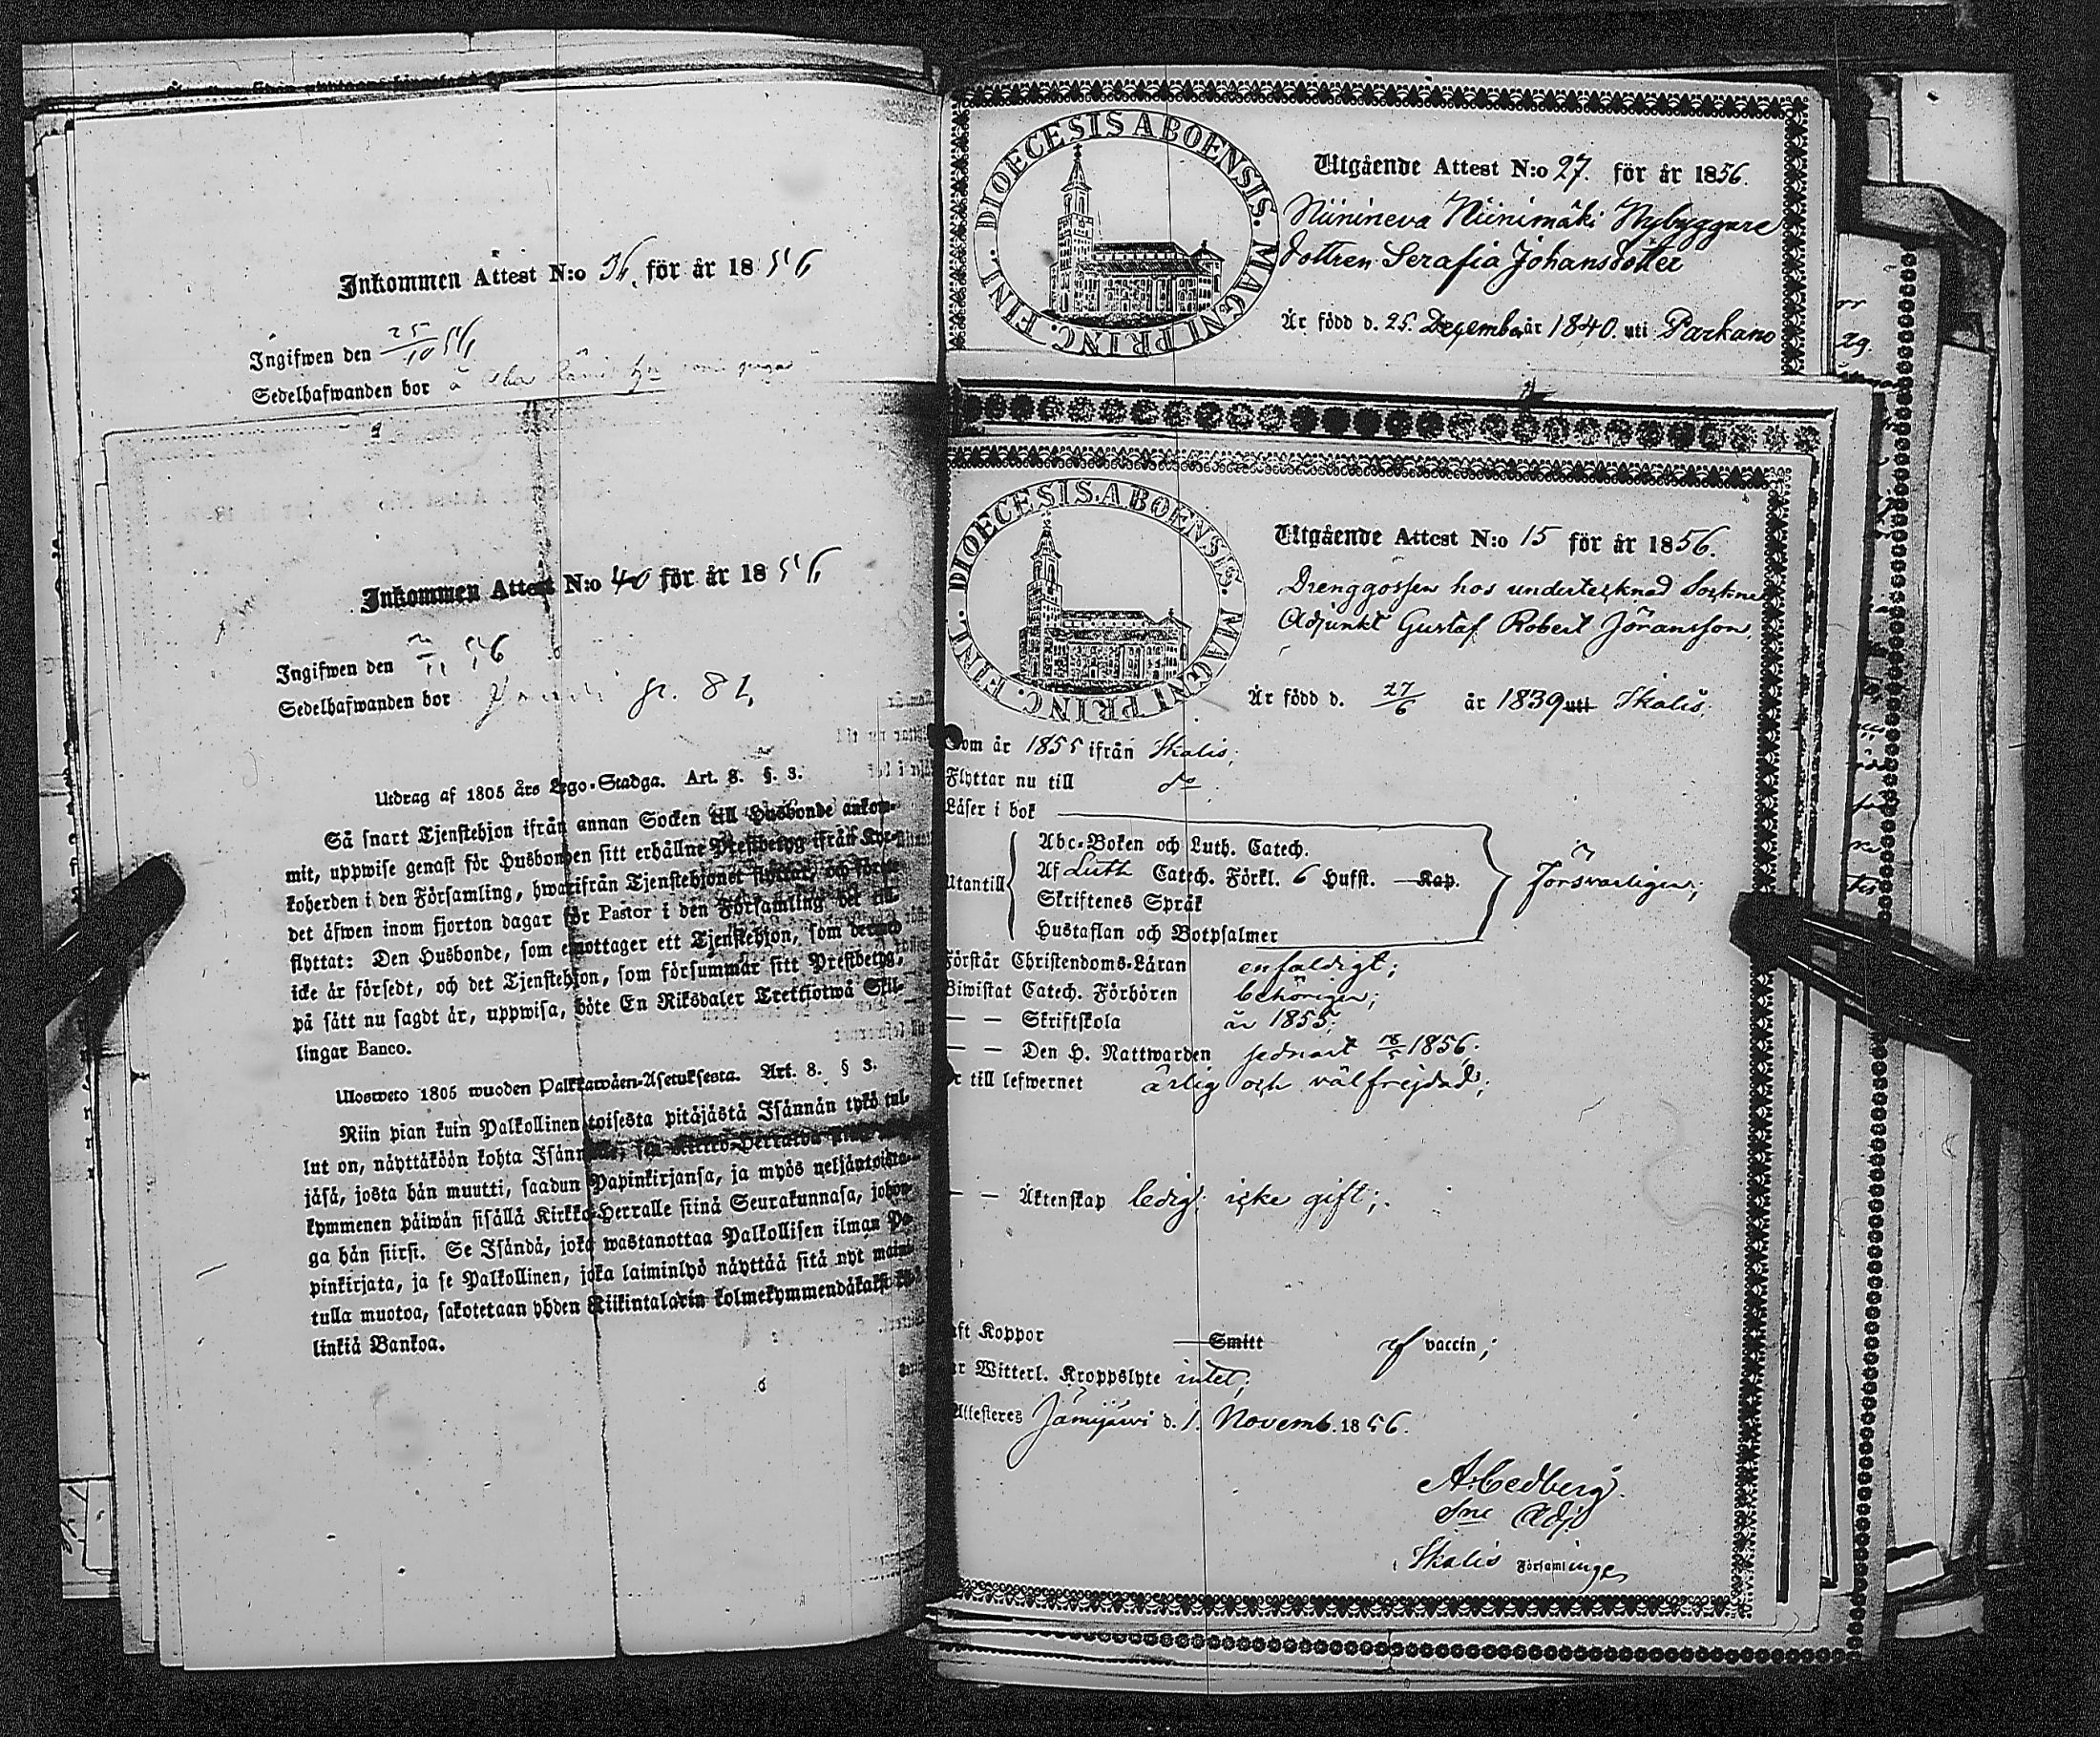 Inkommen Attest N:o 36. för år 1856
Ingifwen den 25/10 56
Sedelhafwanden bor å
Inkommen Attest N:o 40 för år 1856
Ingifwen den 56
Sedelhafwanden bor
Utdrag af 1805 års Lego-Stadga. Art. 8. §. 3.
Så snart Tjenstehjon ifrån annan Socken till Husbonde ankom-
mit, uppwise genast för Husbonden sitt erhållne Prestbetyg ifrån Kyr-
koherden i den Församling, hwarifrån Tjenstehjonet flyttat, och
det äfwen inom fjorton dagar för Pastor i den Församling det
flyttat: Den Husbonde, som emottager ett Tjenstehjon, som dermed
icke är försedt, och det Tjenstehjon, som försummar sitt Prestbetyg,
på sätt nu sagdt är, uppwisa, böte En Riksdaler Trettiotwå Skil-
lingar Banco.
Ulosweto 1805 wuoden Palkkawäen-Asetuksesta. Art. 8. § 3.
Niin pian kuin Palkollinen toisesta pitäjästä Isännän tykö tul-
lut on, näyttäköön kohta Isännälle, sen Kirkko-Herralda
jäsä, josta hän muutti, saadun Papinkirjansa, ja myös neljäntoista-
kymmenen päiwän sisällä Kirkko-Herralle siinä Seurakunnasa, johon-
ga hän siirsi. Se Isändä, joka wastanottaa Palkollisen ilman Pa-
pinkirjata, ja se Palkollinen, joka laiminlyö näyttää sitä nyt maini-
tulla muotoa, sakotetaan yhden Riikintalarin kolmekymmendäkaksi kil-
linkiä Bankoa.
DIOECESIS ABOENSIS. MAGNI PRINC. FINL.
Utgående Attest N:o 27. för år 1856.
Niinineva Niinimäki Nybyggare
dottren Serafia Johansdotter
År född d. 25. December år 1840. uti Parkano
DIOECESIS ABOENSIS. MAGNI PRINC. FINL.
Utgående Attest N:o 15 för år 1856.
Drenggossen hos undertecknad Sockne
Adjunkt Gustaf Robert Jöransson,
År född d. 27/6 år 1839 uti Ikalis;
Kom år 1855 ifrån Ikalis;
Flyttar nu till do.
Läser i bok
Abc-Boken och Luth. Catech.
Utantill Af Luth Catech. Förkl. 6 Hufst. Kap. försvarligen;
Skriftenes Språk
Hustaflan och Botpsalmer
Förstår Christendoms-Läran enfaldigt;
Biwistat Catech. Förhören behörigen;
— — Skriftskola år 1855;
— — Den H. Nattwarden sednast 18/5 1856.
Är till lefwernet ärlig och välfrejdad;
— — Äktenskap ledig; icke gift;
Haft Koppor Smitt af vaccin;
Har Witterl. Kroppslyte intet;
Attesteres Jämijärvi d. 1. Novemb. 1856.
A. Cedberg.
Sne Adj.
i Ikalis Församlinge